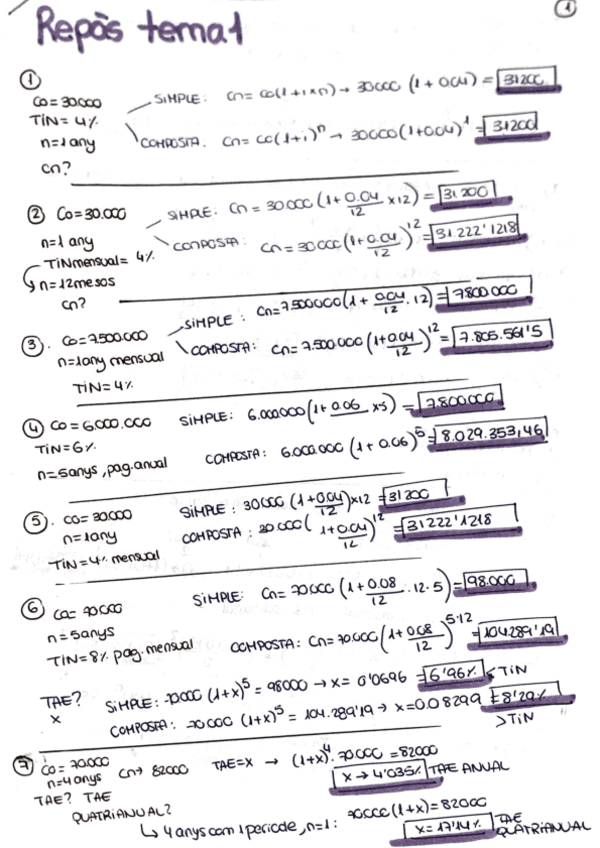 1
Repàs tema 1
①
Co = 30000
TiN = 4%
n = 1 any
cn?
SiMPLE: Cn = Co(1 + i × n) → 30000 (1 + 0,04) = 31200
COMPOSTA: Cn = Co(1+i)^n → 30000(1+0,04)^1 = 31200
② Co = 30.000
n = 1 any
TiN mensual = 4%
↳ n = 12 mesos
cn?
SiMPLE: Cn = 30 000 (1 + 0.04/12 × 12) = 31 200
COMPOSTA: Cn = 30 000 (1 + 0.04/12)^12 = 31.222'1218
③. Co = 7.500.000
n = 1 any mensual
TiN = 4%
SiMPLE: Cn = 7.500000 (1 + 0.04/12 · 12) = 7800 000
COMPOSTA: Cn = 7.500.000 (1+0.04/12)^12 = 7.805.561'5
④ Co = 6.000.000
TiN = 6%
n = 5 anys, pag. anual
SiMPLE: 6.000.000 (1 + 0.06 × 5) = 7.800.000
COMPOSTA: 6.000.000 (1 + 0.06)^5 = 8.029.353,46
⑤. Co = 30.000
n = 1 any
TiN = 4% mensual
SiMPLE: 30 000 (1 + 0.04/12) × 12 = 31 200
COMPOSTA: 30 000 (1 + 0.04/12)^12 = 31 222'1218
⑥ Co = 70 000
n = 5 anys
TiN = 8% pag. mensual
SiMPLE: Cn = 70 000 (1 + 0.08/12 · 12 · 5) = 98.000
COMPOSTA: Cn = 70.000 (1 + 0.08/12)^5·12 = 104.289'19
TAE?
x
SiMPLE: 70000 (1+x)^5 = 98000 → x = 0'0696 = 6'96% < TiN
COMPOSTA: 70 000 (1+x)^5 = 104.289'19 → x = 0.08299 = 8'29% > TiN
⑦ Co = 70.000
n = 4 anys
Cn → 82000
TAE? TAE QUATRIANUAL?
TAE = x → (1+x)^4 · 70 000 = 82000
x → 4'035% TAE ANUAL
↳ 4 anys com 1 periode, n=1: 70000 (1+x) = 82000
x = 17'14% TAE QUATRIANUAL